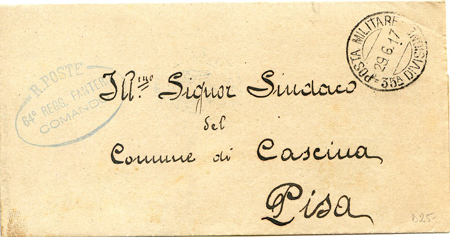 R. POSTE
64° REGG. FANTERIA
COMANDO
POSTA MILITARE
29.6.17
35A DIVISIONE
Ill.mo Signor Sindaco
del
Comune di Cascina
Pisa
D25-